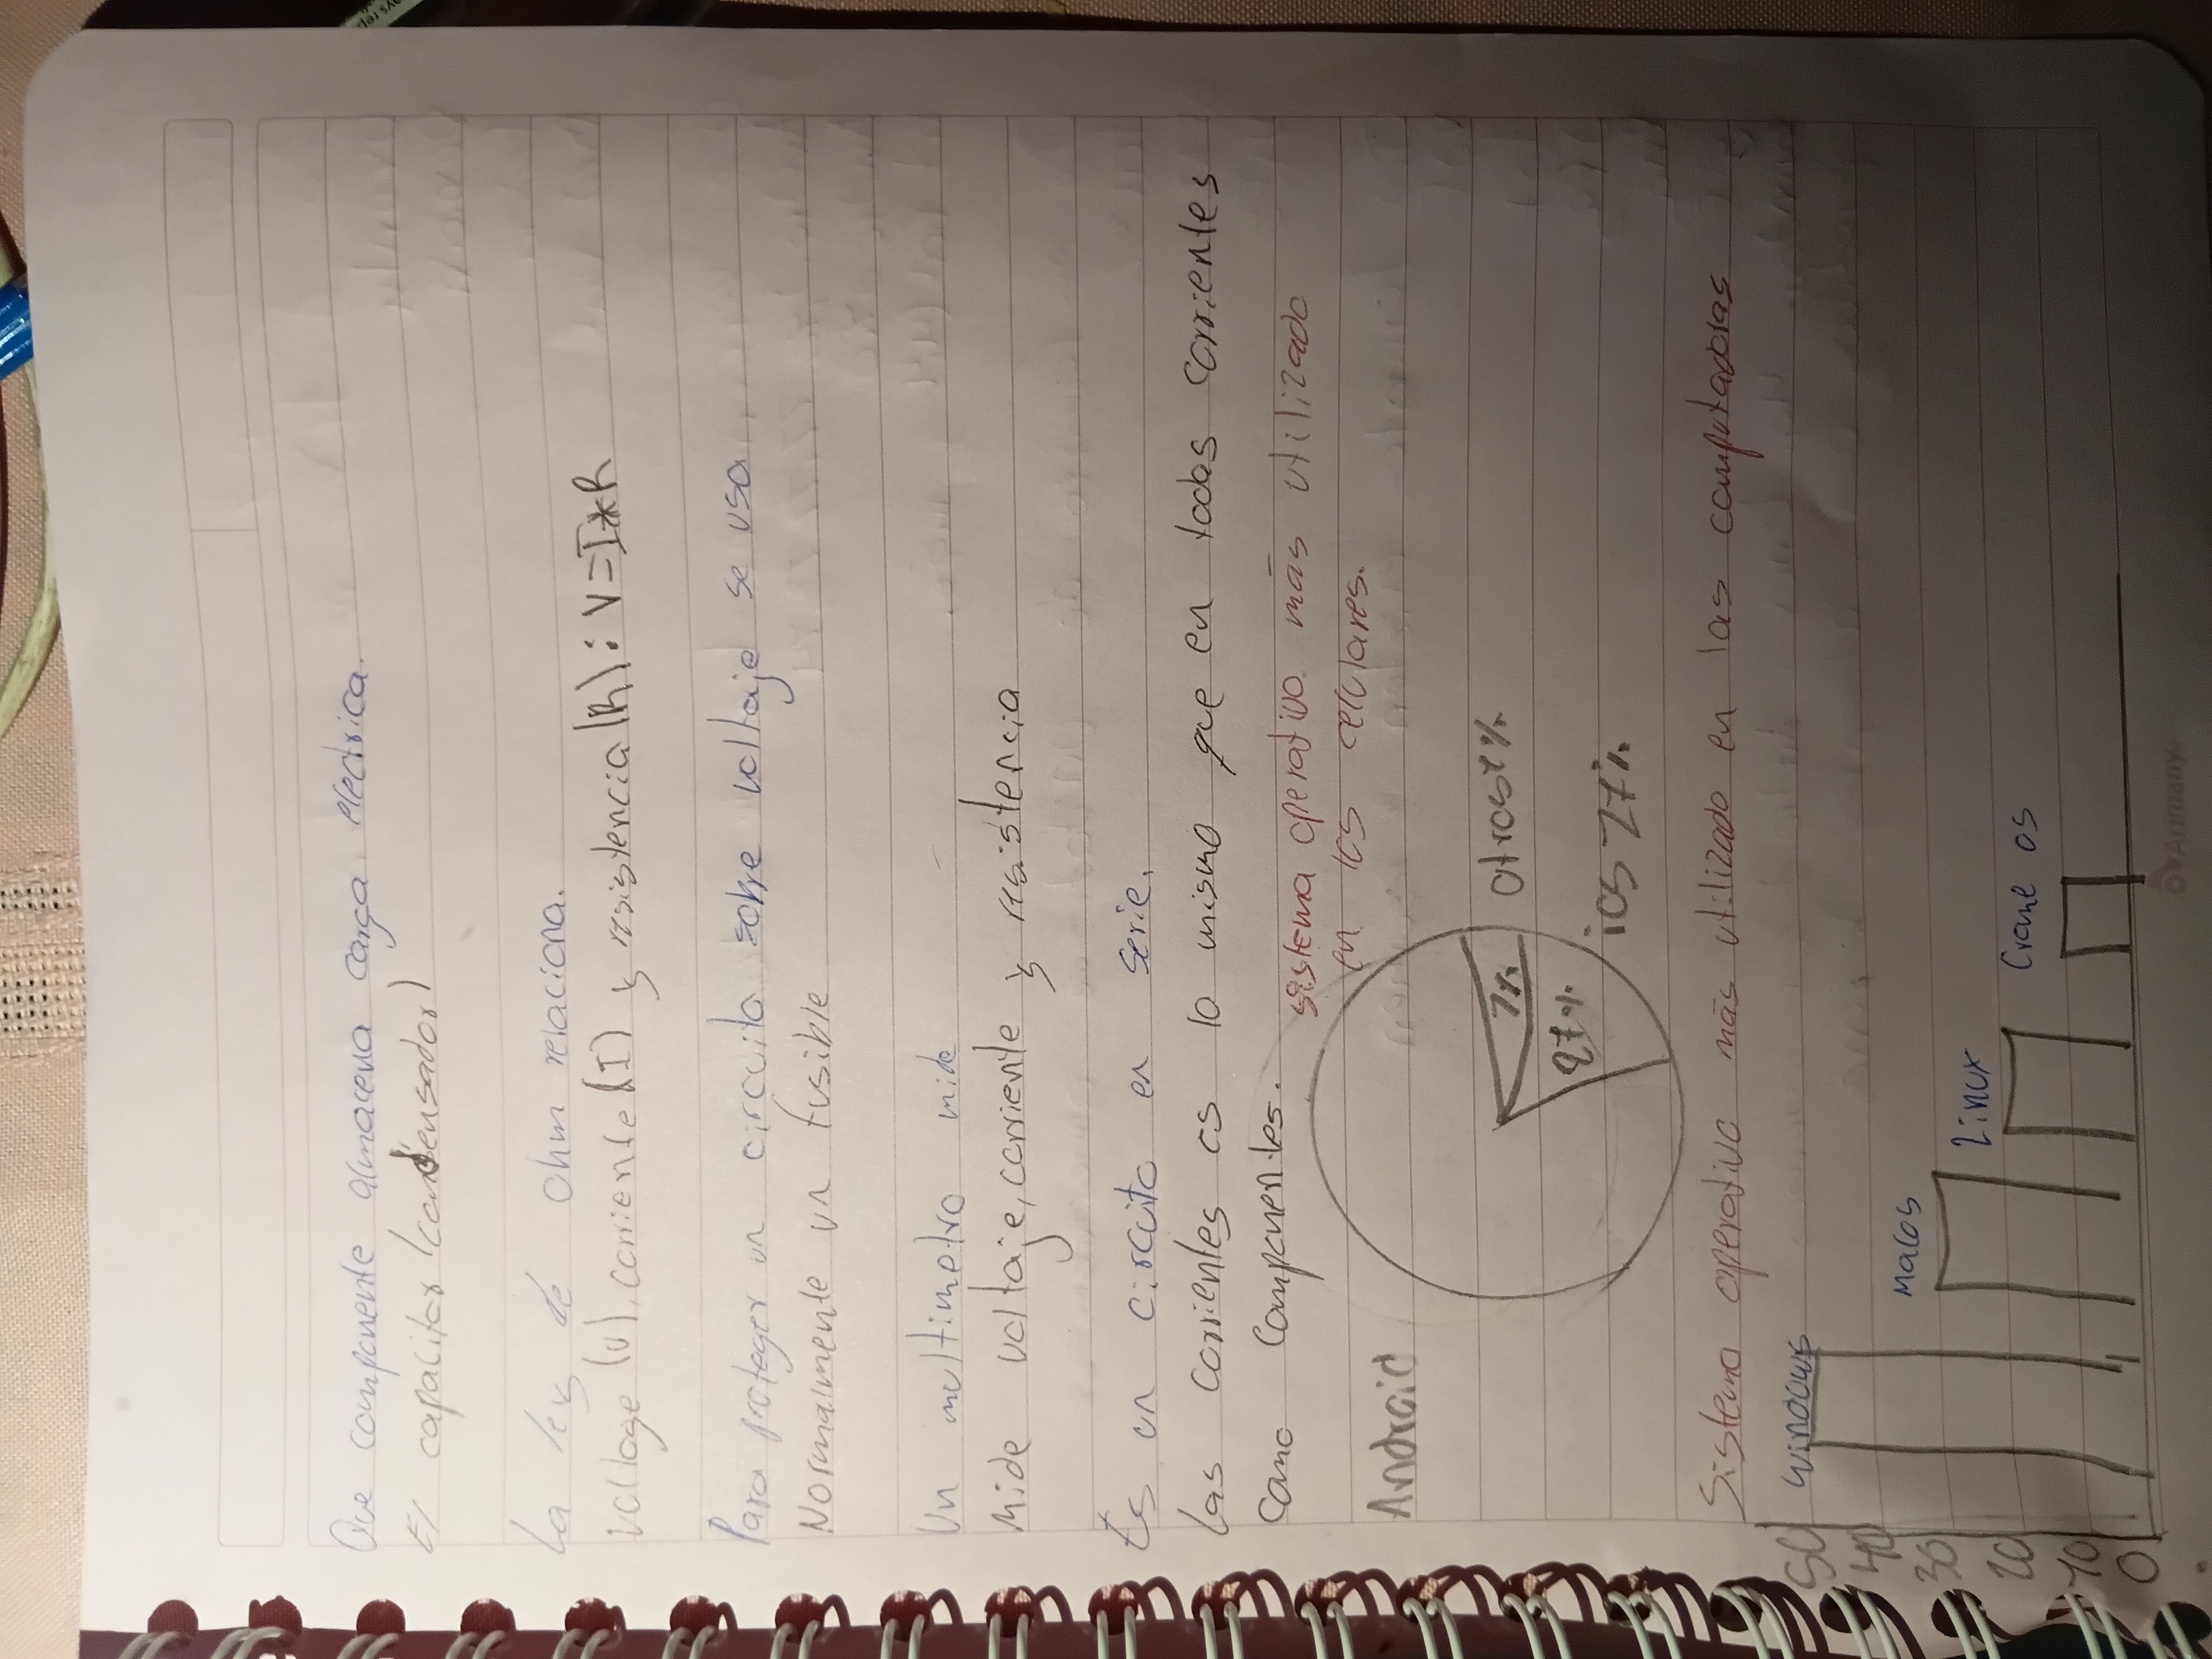 Que componente almacena carga electrica.
El capacitor (condensador)
La ley de Ohm relaciona.
voltage (v), corriente (I) y resistencia (R): V=I*R
Para proteger un circuito sobre voltaje se usa
Normalmente un fusible
Un multimetro mide
Mide voltaje, corriente y resistencia
Es un circuito en serie.
Las corrientes es lo mismo que en todas corrientes
Como componentes.
sistema operativo más utilizado
en los celulares.
Android
1%
27%
otros 1%
ios 27%
Sistema operativo más utilizado en las computadoras
windows
Macos
Linux
Crome os
50
40
30
20
10
0
Arimany